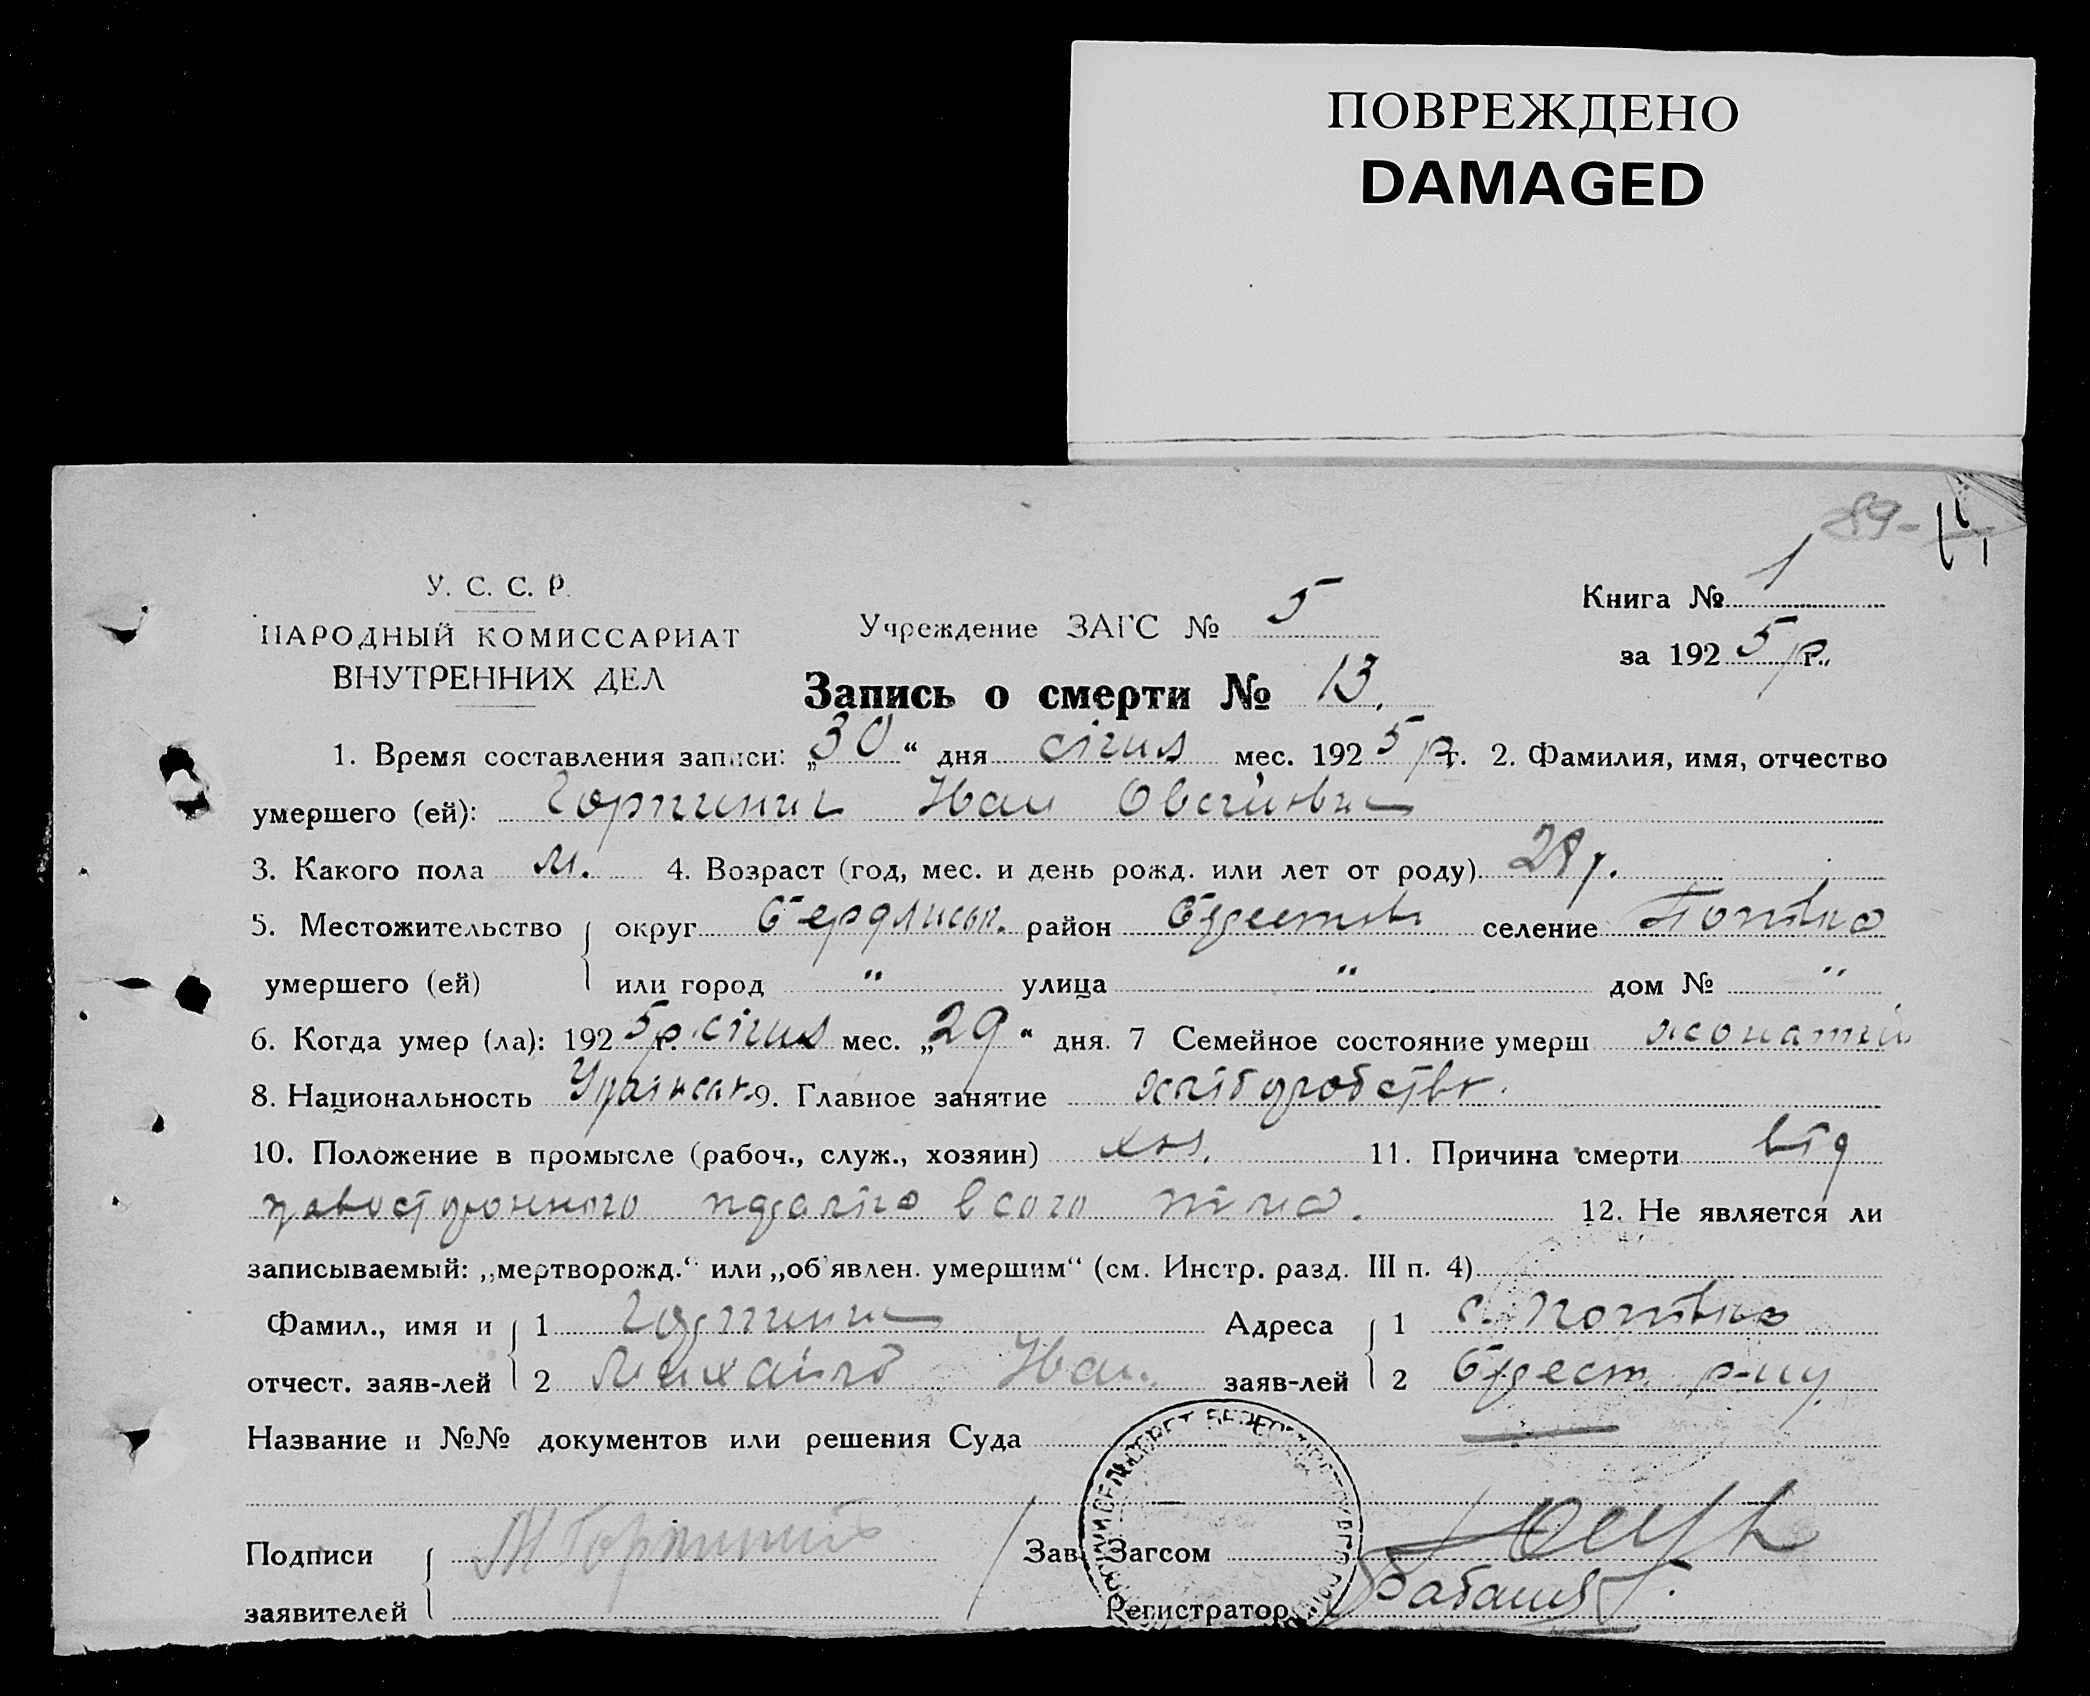 ПОВРЕЖДЕНО
DAMAGED
89-
У. С. С. Р.
НАРОДНЫЙ КОМИССАРИАТ
ВНУТРЕННИХ ДЕЛ
Учреждение ЗАГС № 5
Книга № 1
за 1925 р. г.
Запись о смерти № 13.
1. Время составления записи: „30“ дня січня мес. 1925 р. г. 2. Фамилия, имя, отчество
умершего (ей): Горпинич Иван
3. Какого пола м. 4. Возраст (год, мес. и день рожд. или лет от роду) р.
5. Местожительство округ Бердянськ. район селение
умершего (ей) или город " улица " дом № "
6. Когда умер (ла): 1925 р. г. січня мес. „29“ дня. 7 Семейное состояние умерш жонатий
8. Национальность 9. Главное занятие хліборобство
10. Положение в промысле (рабоч., служ., хозяин) хоз. 11. Причина смерти від
правостороннего всого тіла. 12. Не является ли
записываемый: „мертворожд.“ или „об'явлен. умершим“ (см. Инстр. разд. III п. 4)
Фамил., имя и 1 Горпинич Адреса 1 с.
отчест. заяв-лей 2 Михайло Иван. заяв-лей 2 р-ну
Название и №№ документов или решения Суда
Подписи М Горпинич Зав. Загсом
заявителей Регистратор